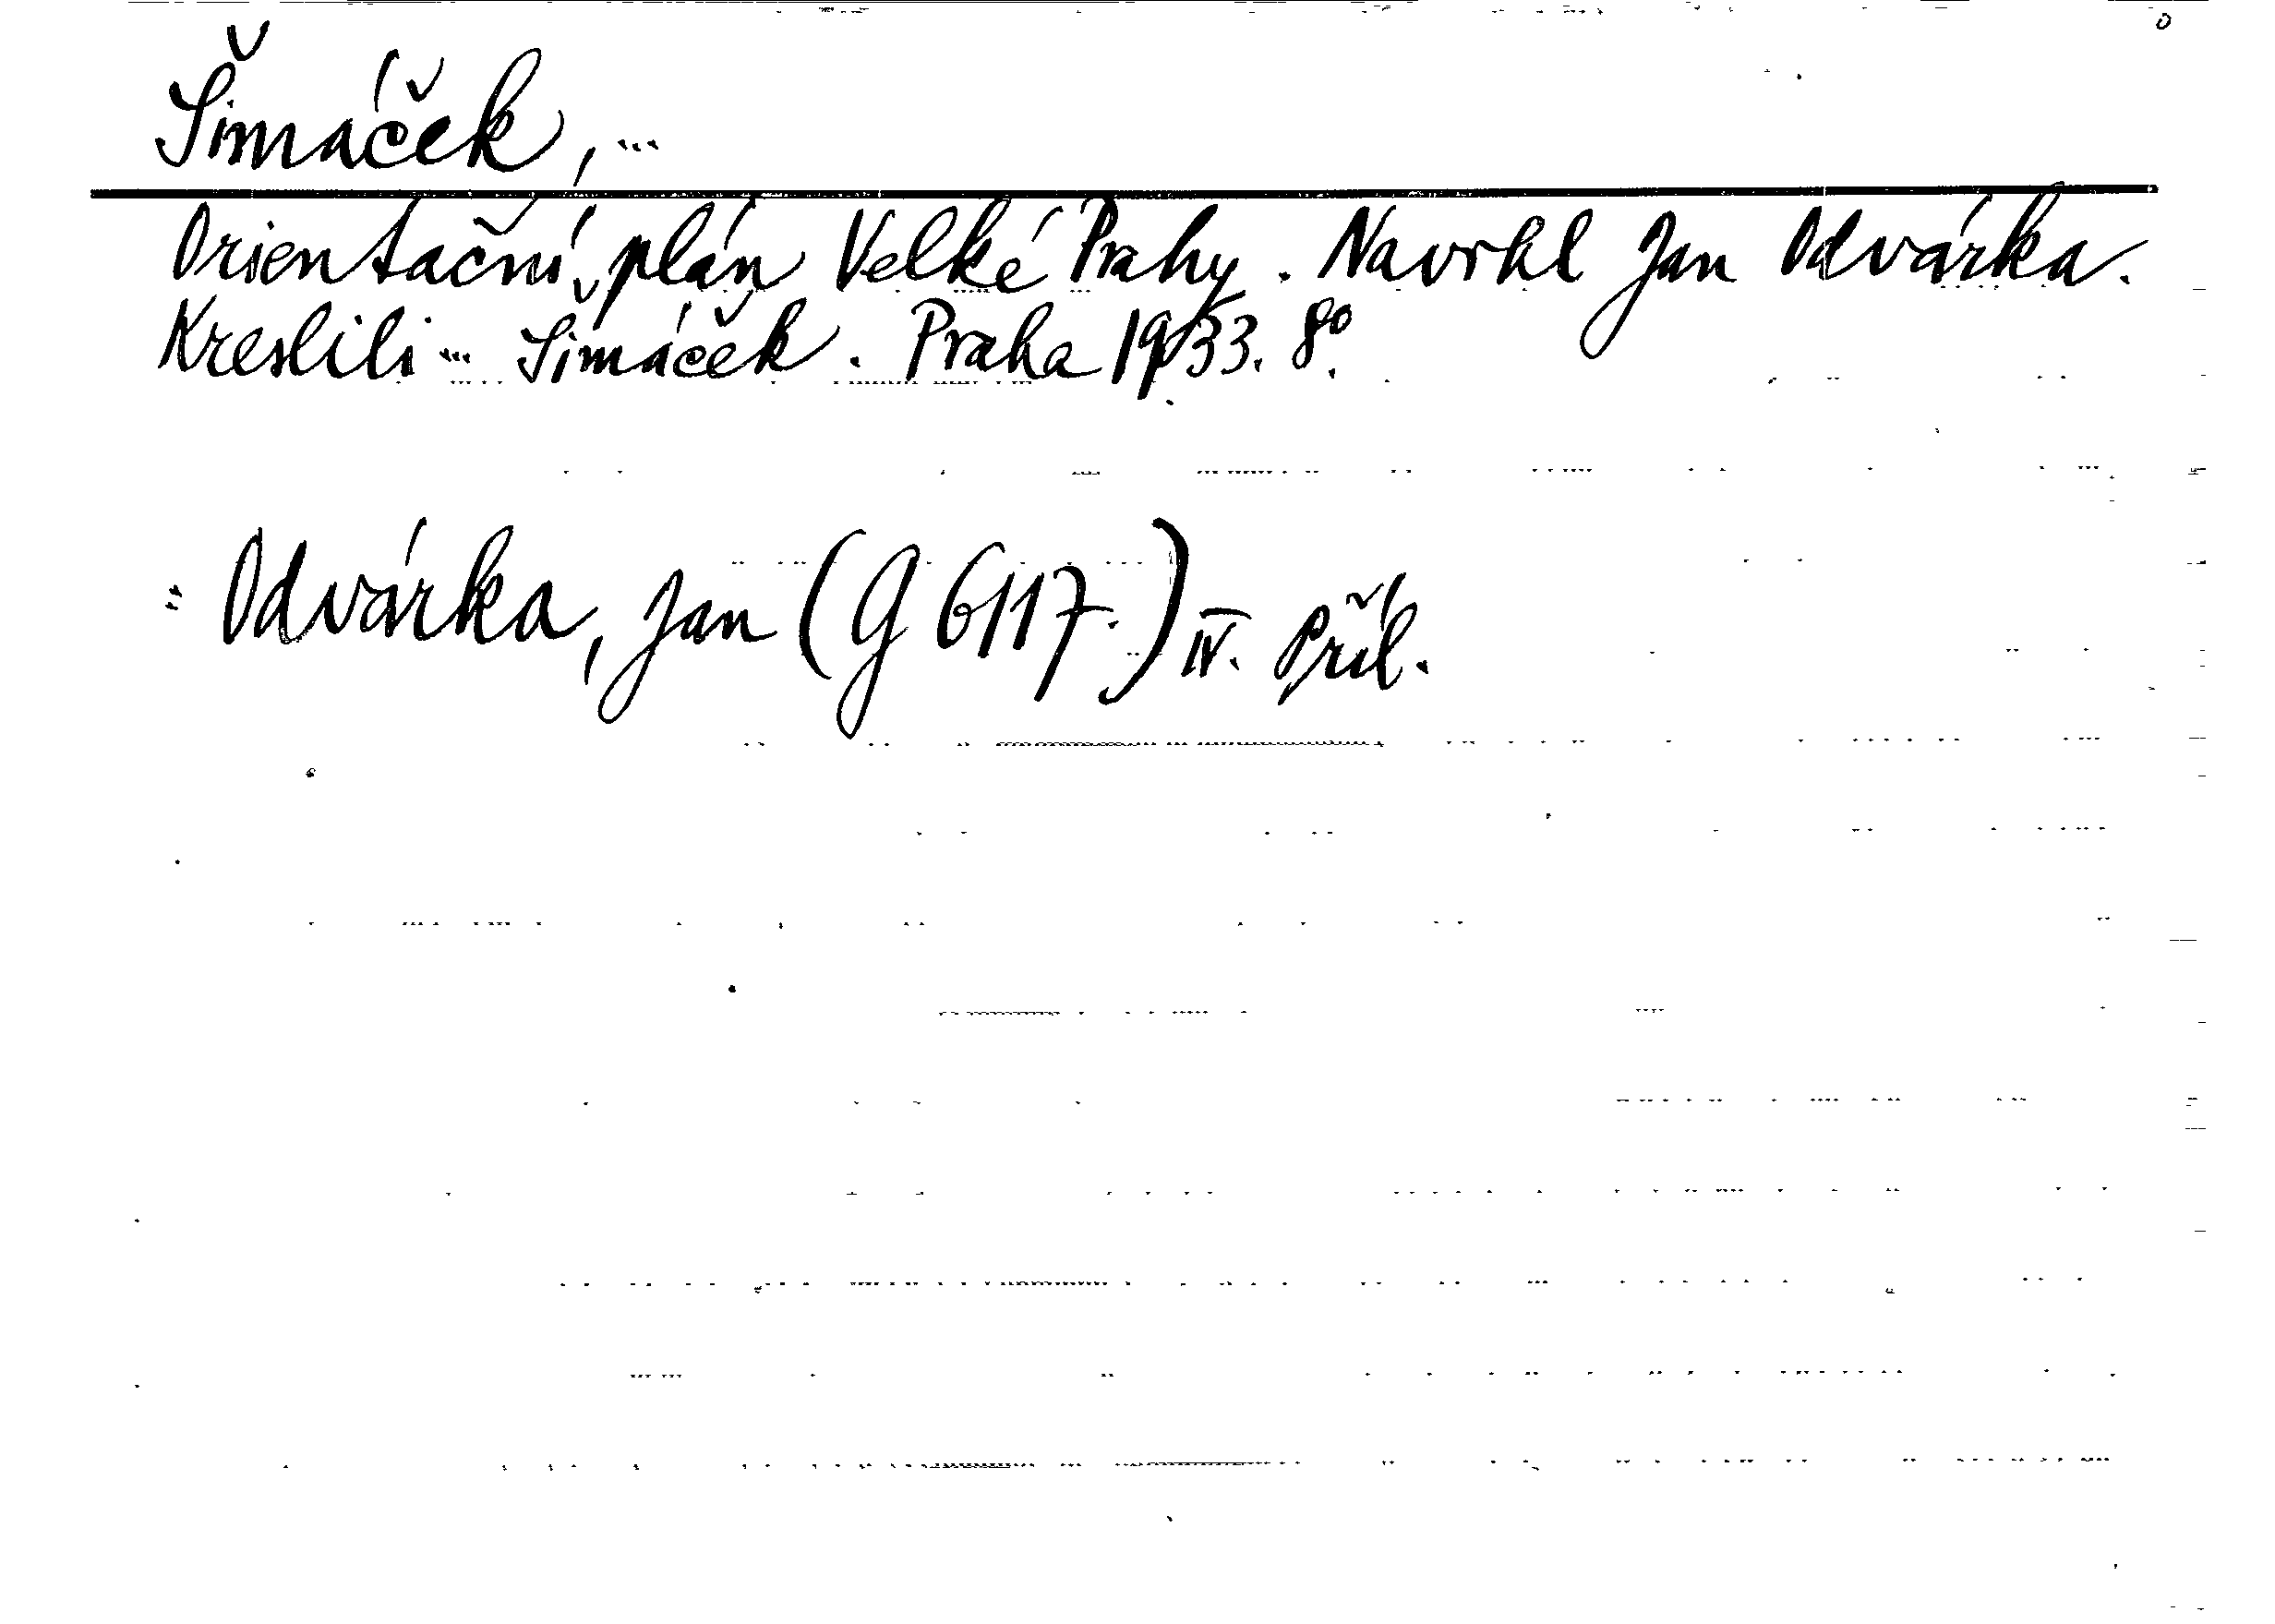 Šimáček, ...
Orientační plán Velké Prahy. Navrhl Jan Odvárka.
Kreslili ... Šimáček. Praha 1933. 8°.
: Odvárka, Jan (G 6117.) IV. Příl.